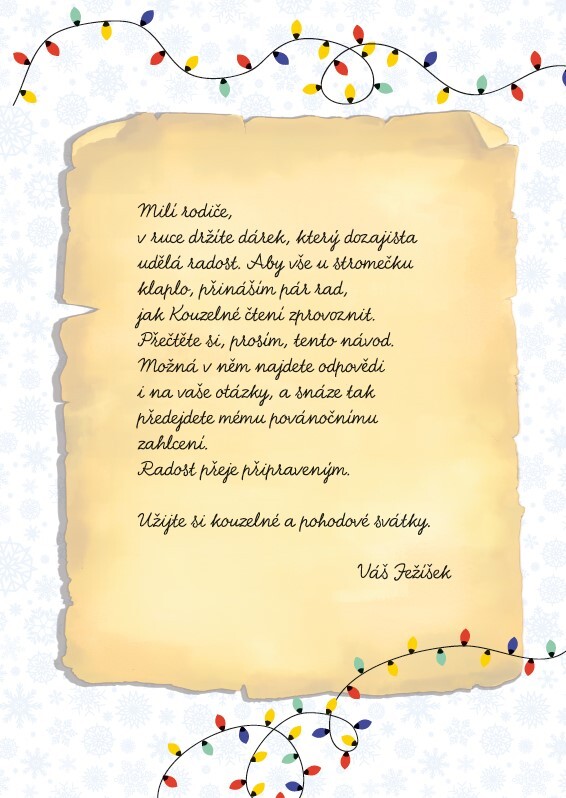 Milí rodiče,
v ruce držíte dárek, který dozajista
udělá radost. Aby vše u stromečku
klaplo, přináším pár rad,
jak Kouzelné čtení zprovoznit.
Přečtěte si, prosím, tento návod.
Možná v něm najdete odpovědi
i na vaše otázky, a snáze tak
předejdete mému povánočnímu
zahlcení.
Radost přeje připraveným.
Užijte si kouzelné a pohodové svátky.
Váš Ježíšek